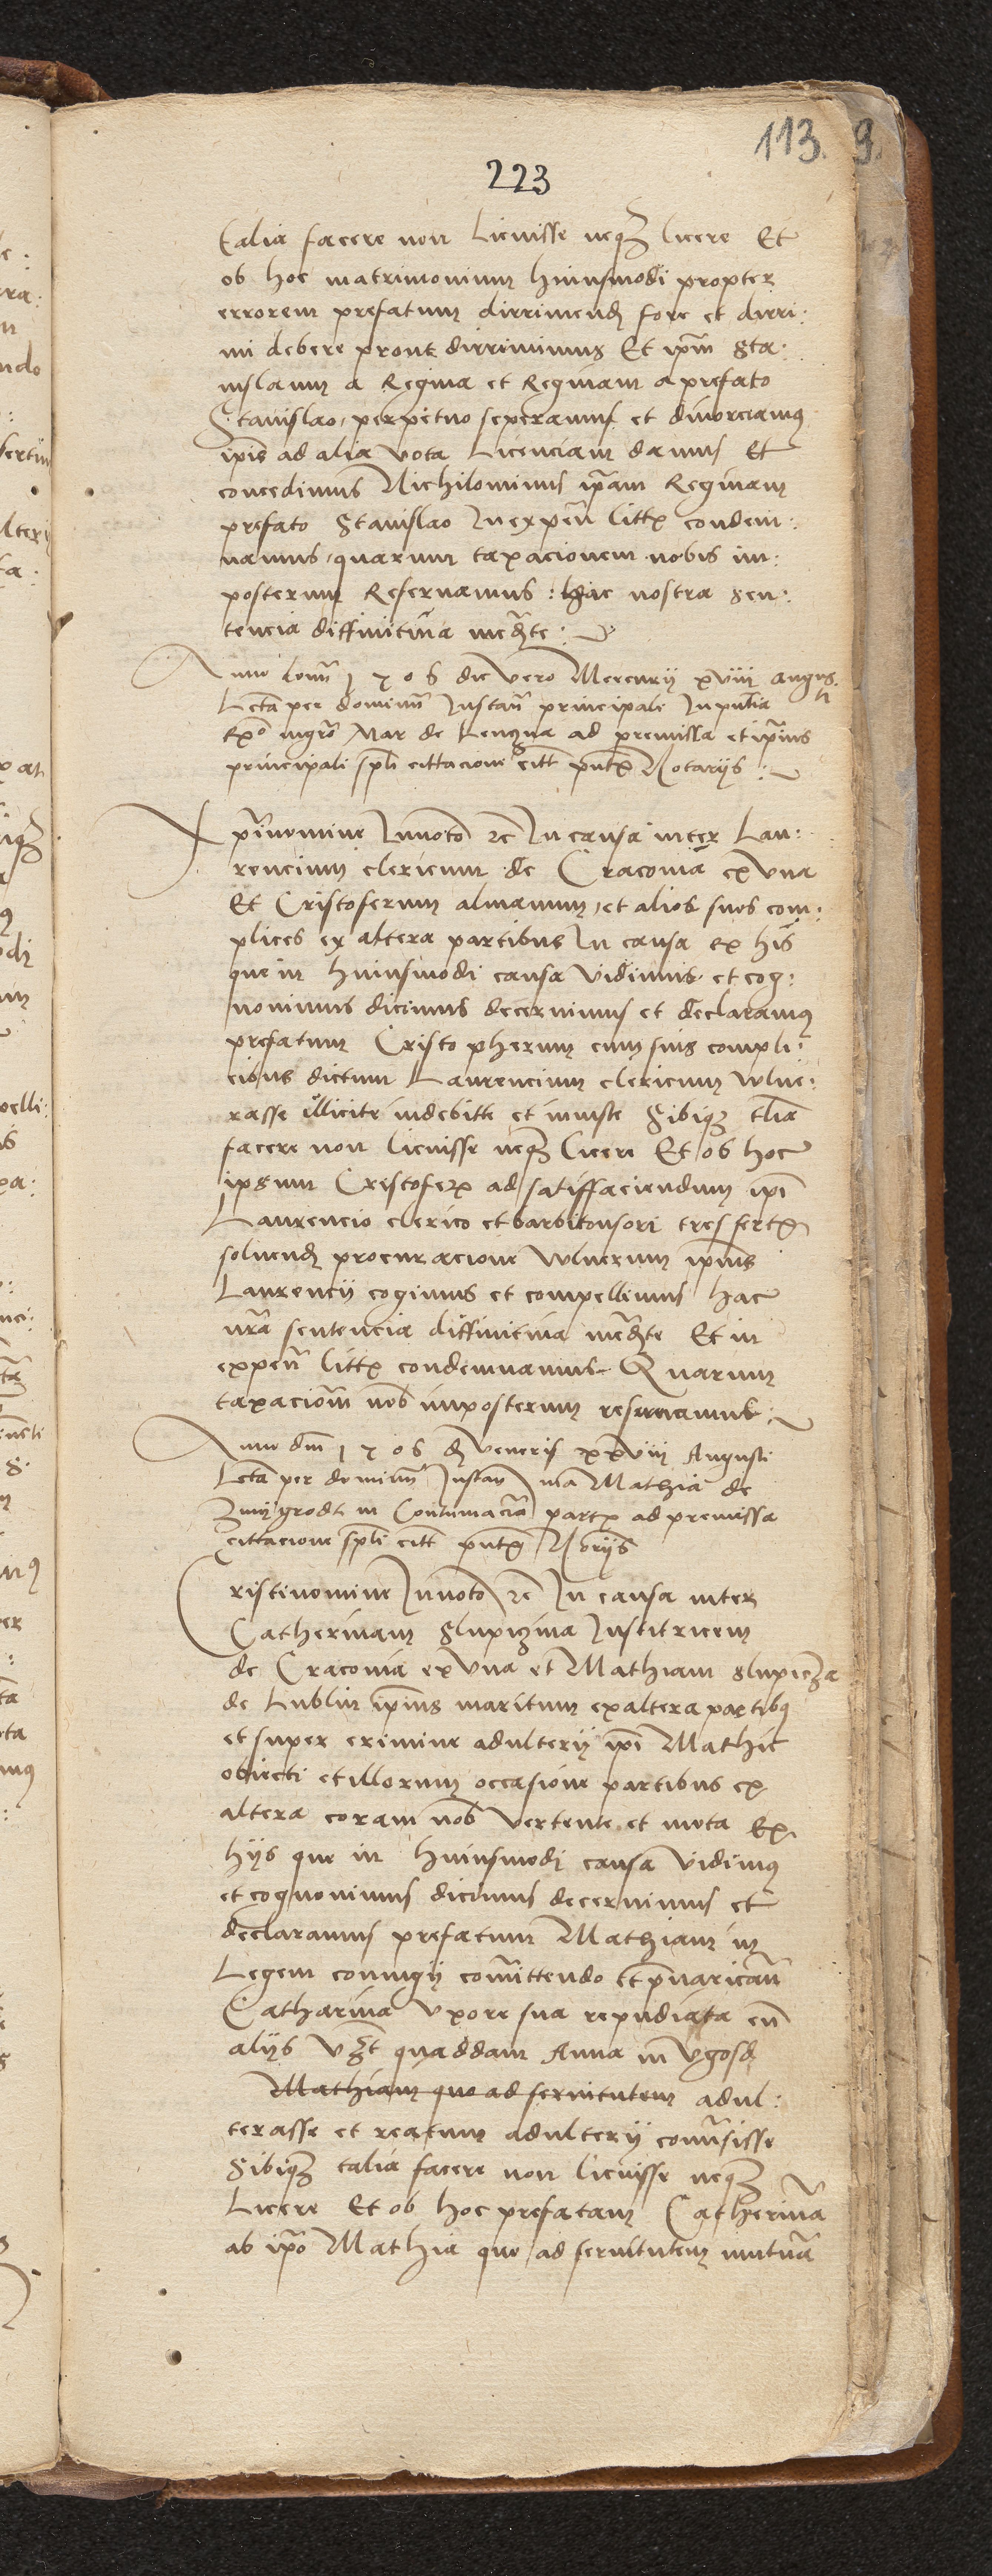 113. 9.
223
talia facere non licuisse neqꝫ licere Et
ob hoc matrimonium huiusmodi propter
errorem prefatum dirrimendꝫ fore et dirri:
mi debere prout dirrimimus Et ipm̄ Sta:
nislaum a Regina et Reginam a prefato
Stanislao perpetuo seperamus et diuorciamus
ipis ad alia vota Licenciam damus Et
concedimus Nichilominus ipam Reginam
prefato Stanislao In expen̄ littꝫ condem:
namus, quarum taxacionem nobis im:
posterum Reseruamus: hac nostra sen:
tencia diffinitiua medꝫte:
Anno domī 1506 die vero Mercurÿ xviii augus:
ti
Lcta per dominū Instan̄ principali In pn̄tia
mgrō Mar de ad premissa et ipius
principali spli cittacione citt pn̄tꝫ Notarÿs:
Xpi nomine Inuocto ꝛc In causa inter Lau:
rencium clericum de Cracouia ex vna
Et Cristoferum almanum, et alios suos com:
plices ex altera partibus In causa ex his
que in huiusmodi causa vidimus et cog:
nouimus dicimus decernimus et declaramus
prefatum Cristopherum cum suis compli:
cibus dictum Laurencium clericum vulne:
rasse illicite indebitte et iniuste Sibiqꝫ tlia
facere non licuisse neqꝫ licere Et ob hoc
ipsum Cristoferꝫ ad satiffaciendum ipi
Laurencio clerico et barbitonsori tres fertꝫ
soluendꝫ procuracione vulnerum ipius
Laurencÿ cogimus et compellimus hac
nr̄a sentencia diffinitiua medꝫte Et in
expen̄ littꝫ condemnamus Quarum
taxaciom̄ nob imposterum reseruamus:
Anno dm̄ 1506 dꝫ veneris xxviii Augusti
Lcta per dominū Instan̄ Mathia de
Zmigrodt in Contumaciā partꝫ ad premissa
cittacione spli citt pn̄tꝫ Norÿs
Cristi nomine Inuocto ꝛc In causa inter
Catherinam Slupczina Institricem
de Cracouia ex vna et Mathiam Slupcza
de Lublin ipius maritum ex altera partibꝰ
et super crimine adulterÿ ipi Mathie
obiecti et illorum occasione partibus ex
altera coram nob vertente et mota Ex
hÿs que in huiusmodi causa vidimus
et cognouimus dicimus decernimus et
declaramus prefatum Mathiam in
Legem coniugÿ comittendo et p̄uarican̄
Catharina vxore sua repudiata cū
alÿs vꝫt quaddam Anna in vgosd
Mathiam quo ad seruitutem adul:
terasse et reatum adulterÿ comisisse
Sibiqꝫ talia facere non licuisse neqꝫ
Licere Et ob hoc prefatam Catherinā
ab ipo Mathia quo ad seruitutem mutuā